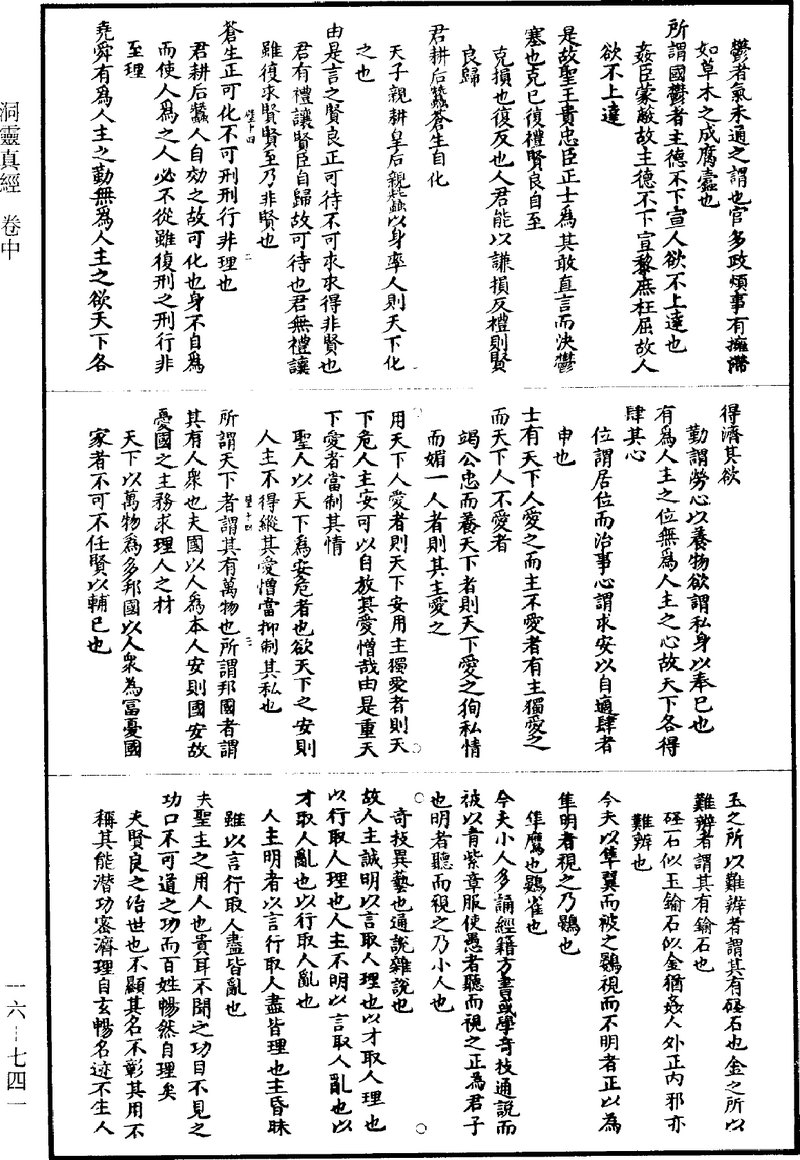 鬱者氣未通之謂也官多政煩事有擁滯
如草木之成腐蠹也
所謂國鬱者主德不下宣人欲不上達也
姦臣蒙蔽故主德不下宣黎庶枉屈故人
欲不上達
是故聖王貴忠臣正士為其敢直言而決鬱
塞也克己復禮賢良自至
克損也復反也人君能以謙損反禮則賢
良歸
君耕后蠶蒼生自化
天子親耕皇后親蠶以身率人則天下化
之也
由是言之賢良正可待不可求求得非賢也
君有禮讓賢臣自歸故可待也君無禮讓
雖復求賢賢至乃非賢也
蒼生正可化不可刑刑行非理也
君耕后蠶人自効之故可化也身不自為
而使人為之人必不從雖復刑之刑行非
至理
堯舜有為人主之勤無為人主之欲天下各
得濟其欲
勤謂勞心以養物欲謂私身以奉己也
有為人主之位無為人主之心故天下各得
肆其心
位謂居位而治事心謂求安以自適肆者
申也
士有天下人愛之而主不愛者有主獨愛之
而天下人不愛者
竭公忠而養天下者則天下愛之狥私情
而媚一人者則其主愛之
用天下人愛者則天下安用主獨愛者則天
下危人主安可以自放其愛憎哉由是重天
下愛者當制其情
聖人以天下為安危者也欲天下之安則
人主不得縱其愛憎當抑制其私也
所謂天下者謂其有萬物也所謂邦國者謂
其有人衆也夫國以人為本人安則國安故
憂國之主務求理人之材
天下以萬物為多邦國以人衆為冨憂國
家者不可不任賢以輔己也
玉之所以難辨者謂其有𥐟石也金之所以
難辨者謂其有鍮石也
𥐟石似玉鍮石似金猶姦人外正内邪亦
難辨也
今夫以隼翼而被之鷃視而不明者正以為
隼明者視之乃鷃也
隼鷹也鷃雀也
今夫小人多誦經籍方書或學奇技通說而
被以青紫章服使愚者聽而視之正為君子
也明者聽而視之乃小人也
奇技異藝也通說雜說也
故人主誠明以言取人理也以才取人理也
以行取人理也人主不明以言取人亂也以
才取人亂也以行取人亂也
人主明者以言行取人盡皆理也主昏昧
雖以言行取人盡皆亂也
夫聖主之用人也貴耳不聞之功目不見之
功口不可道之功而百姓暢然自理矣
夫賢良之治世也不顯其名不彰其用不
稱其能潛功密濟理自玄暢名迹不生人
洞靈真經 卷中
一六——七四一